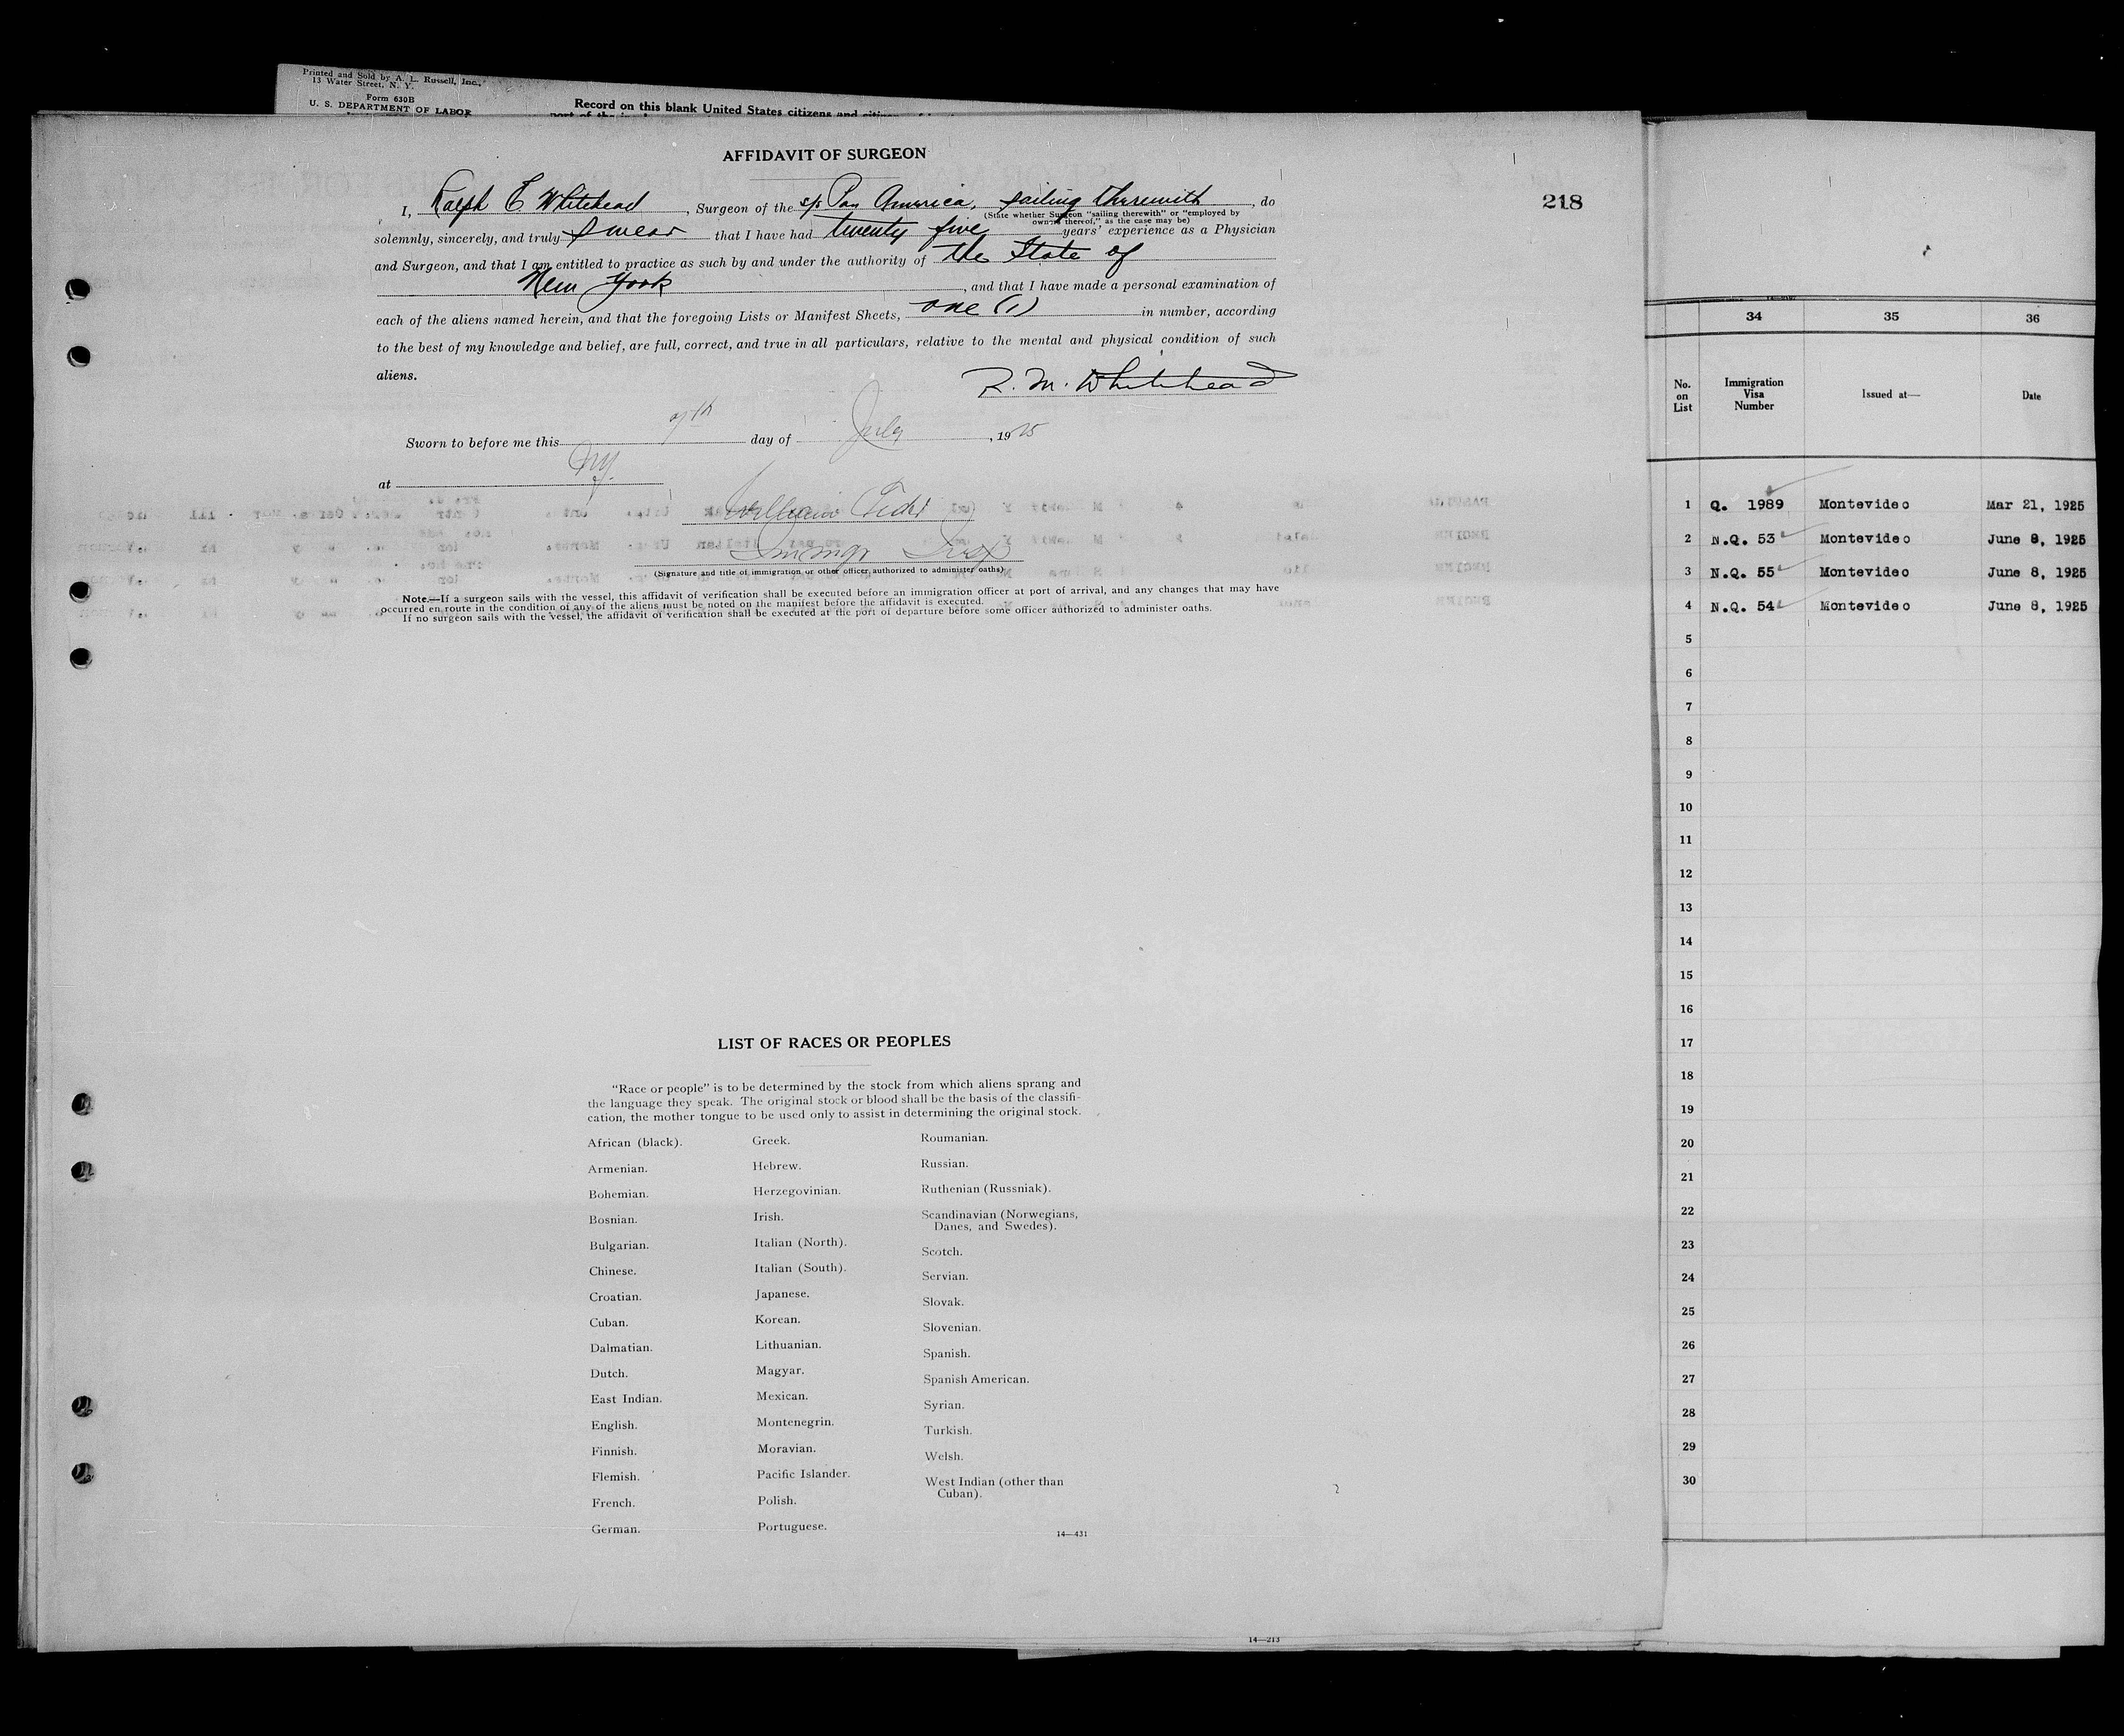 Printed and Sold by A. L. Russell, Inc.,
13 Water Street, N. Y.
Form 630B
U. S. DEPARTMENT OF LABOR
Record on this blank United States citizens and
AFFIDAVIT OF SURGEON
218
I, Ralph E. Whitehead, Surgeon of the s/s Pan America, sailing therewith, do
(State whether Surgeon "sailing therewith" or "employed by
owners thereof," as the case may be)
solemnly, sincerely, and truly swear that I have had twenty five years' experience as a Physician
and Surgeon, and that I am entitled to practice as such by and under the authority of the State of
New York, and that I have made a personal examination of
each of the aliens named herein, and that the foregoing Lists or Manifest Sheets, one (1) in number, according
to the best of my knowledge and belief, are full, correct, and true in all particulars, relative to the mental and physical condition of such
aliens.
R. M. Whitehead
Sworn to before me this 7th day of July, 1925
at NY.
William
Immigr Insp
(Signature and title of immigration or other officer authorized to administer oaths)
Note.—If a surgeon sails with the vessel, this affidavit of verification shall be executed before an immigration officer at port of arrival, and any changes that may have
occurred en route in the condition of any of the aliens must be noted on the manifest before the affidavit is executed.
If no surgeon sails with the vessel, the affidavit of verification shall be executed at the port of departure before some officer authorized to administer oaths.
LIST OF RACES OR PEOPLES
"Race or people" is to be determined by the stock from which aliens sprang and
the language they speak. The original stock or blood shall be the basis of the classifi-
cation, the mother tongue to be used only to assist in determining the original stock.
African (black).
Armenian.
Bohemian.
Bosnian.
Bulgarian.
Chinese.
Croatian.
Cuban.
Dalmatian.
Dutch.
East Indian.
English.
Finnish.
Flemish.
French.
German.
Greek.
Hebrew.
Herzegovinian.
Irish.
Italian (North).
Italian (South).
Japanese.
Korean.
Lithuanian.
Magyar.
Mexican.
Montenegrin.
Moravian.
Pacific Islander.
Polish.
Portuguese.
Roumanian.
Russian.
Ruthenian (Russniak).
Scandinavian (Norwegians,
Danes, and Swedes).
Scotch.
Servian.
Slovak.
Slovenian.
Spanish.
Spanish American.
Syrian.
Turkish.
Welsh.
West Indian (other than
Cuban).
14—431
14—213
34 35 36
No. on List Immigration Visa Number Issued at— Date
1 Q. 1989 Montevideo Mar 21, 1925
2 N.Q. 53 Montevideo June 8, 1925
3 N.Q. 55 Montevideo June 8, 1925
4 N.Q. 54 Montevideo June 8, 1925
5
6
7
8
9
10
11
12
13
14
15
16
17
18
19
20
21
22
23
24
25
26
27
28
29
30